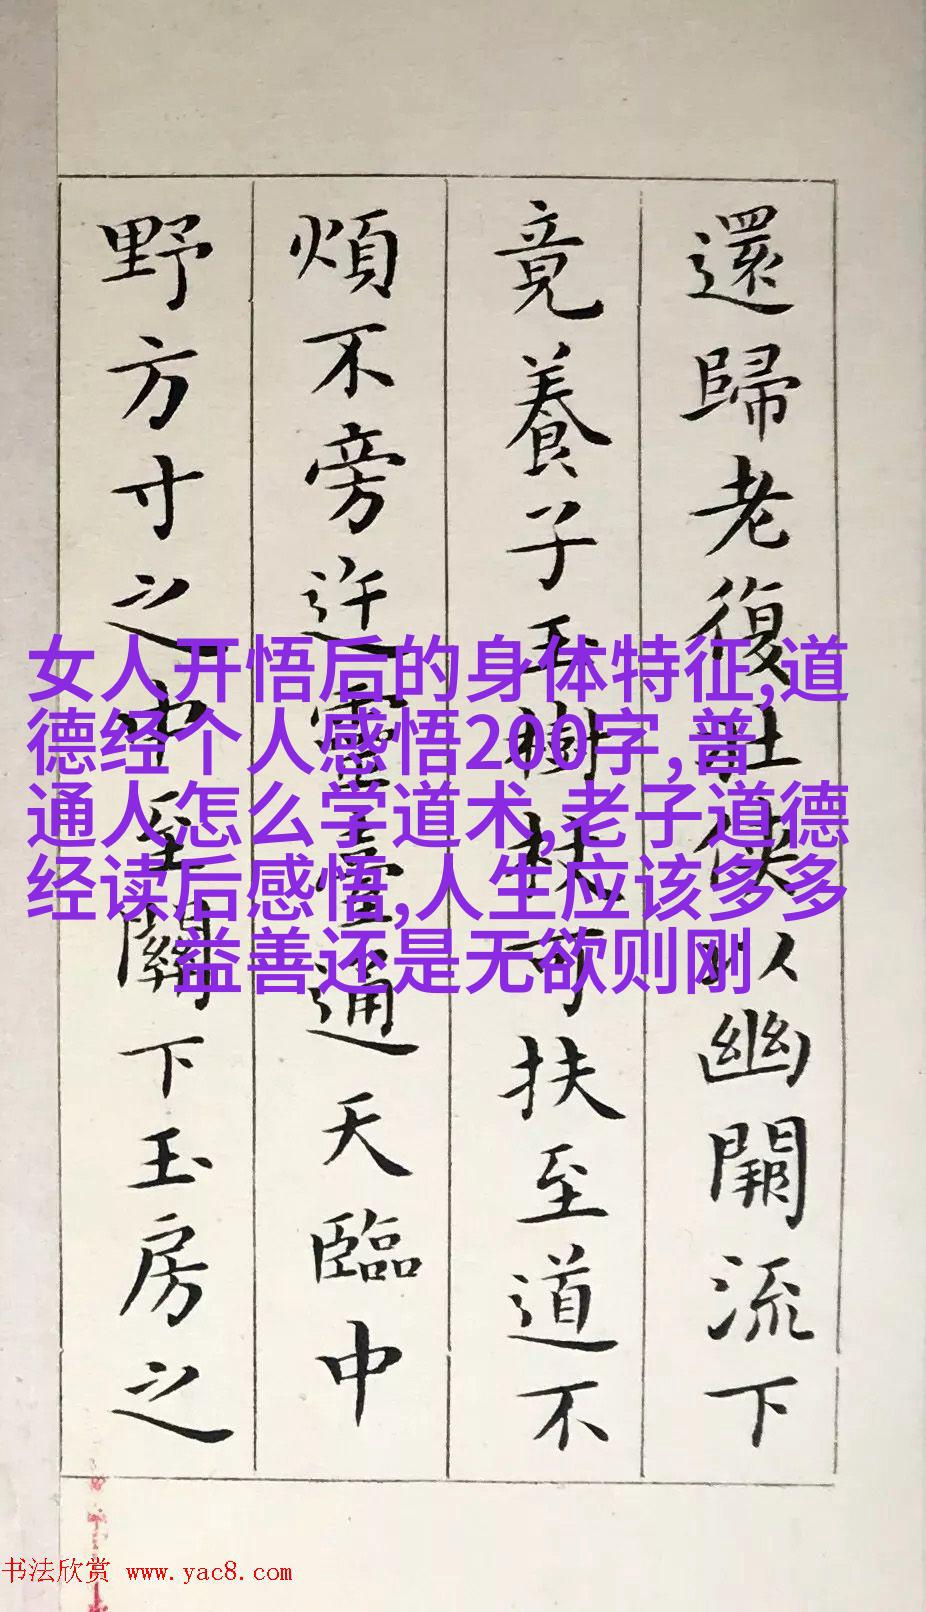 還歸老復壯俠以幽闕流下
竟養子玉樹杖可扶至道不
煩不旁迕靈臺通天臨中
野方寸之中至關下玉房之
女人开悟后的身体特征,道
德经个人感悟200字,普
通人怎么学道术,老子道德
经读后感悟,人生应该多多
益善还是无欲则刚
书法欣赏 www.yac8.com